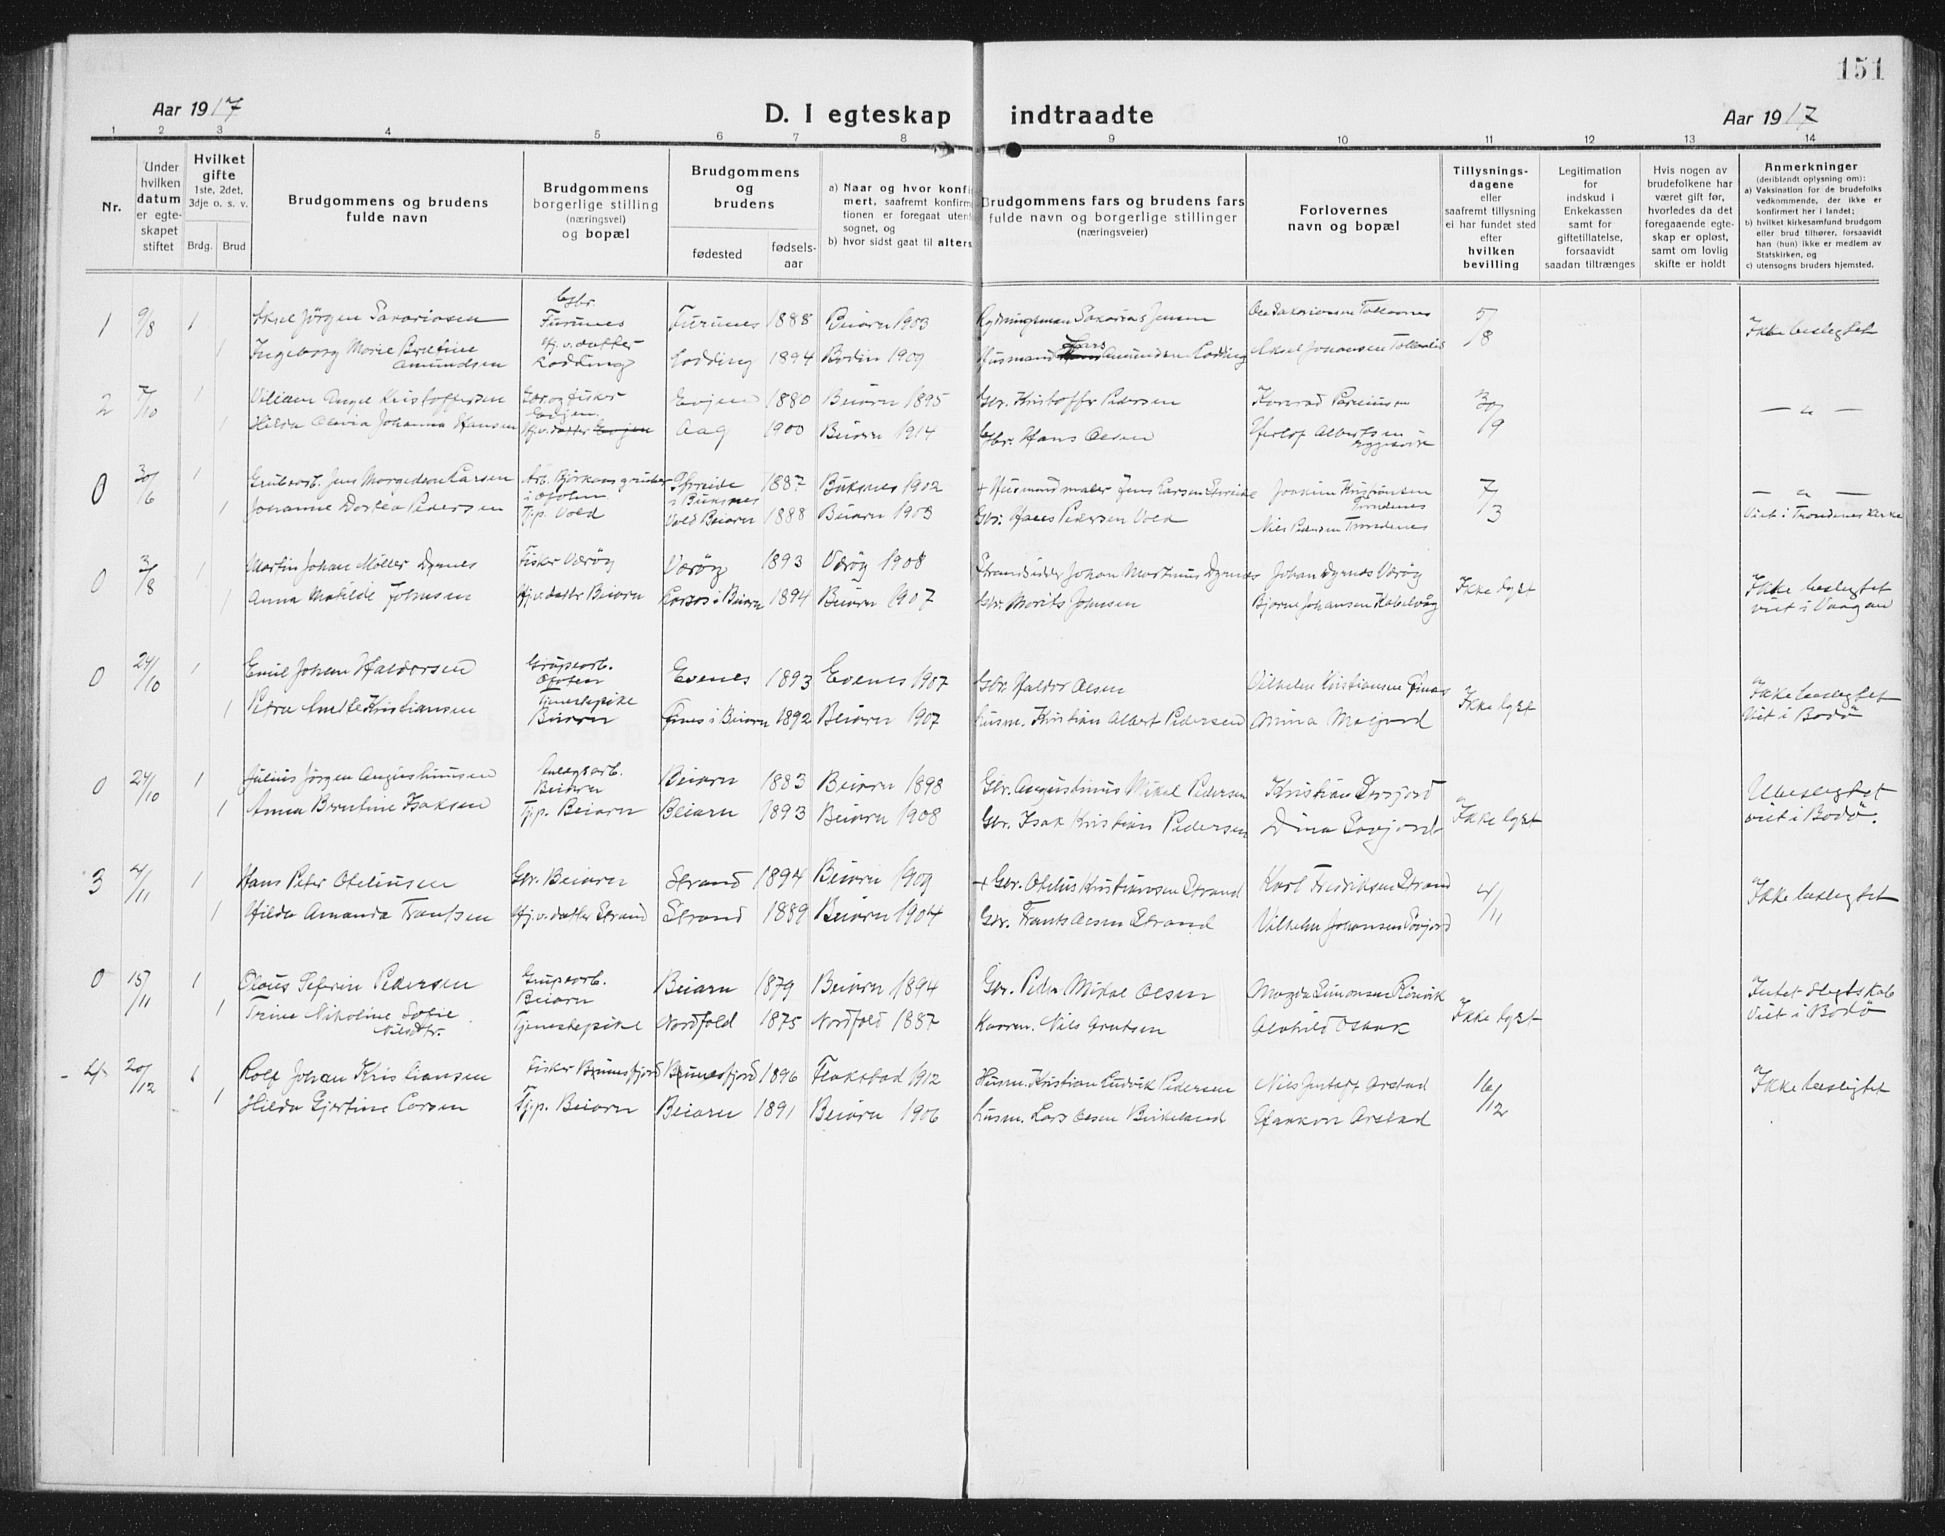 151
Aar 1917
D. I egteskap indtraadte
Aar 1917
1 2 3 4 5 6 7 8 9 10 11 12 13 14
Nr.
Under hvilken datum er egteskapet stiftet
Hvilket gifte 1ste, 2det, 3dje o. s. v.
Brdg. Brud
Brudgommens og brudens fulde navn
Brudgommens borgerlige stilling (næringsvei) og bopæl
Brudgommens og brudens
fødested
fødselsaar
a) Naar og hvor konfirmert, saafremt konfirmationen er foregaat utenfor sognet, og
b) hvor sidst gaat til alters
Brudgommens fars og brudens fars fulde navn og borgerlige stillinger (næringsveier)
Forlovernes navn og bopæl
Tillysningsdagene eller saafremt tillysning ei har fundet sted efter hvilken bevilling
Legitimation for indskud i Enkekassen samt for giftetillatelse, forsaavidt saadan tiltrænges
Hvis nogen av brudefolkene har været gift før, hvorledes da det foregaaende egteskap er opløst, samt om lovlig skifte er holdt
Anmerkninger (deriblandt oplysning om):
a) Vaksination for de brudefolks vedkommende, der ikke er konfirmert her i landet;
b) hvilket kirkesamfund brudgom eller brud tilhører, forsaavidt han (hun) ikke er medlem av Statskirken, og
c) utensogns bruders hjemsted.
1 9/8 1 Aksel Jörgen Sakariasen Gbr. Furunes Furunes 1888 Beiarn 1903 Rydningsman Sakarias Jensen Ole Sakariassen Tollaanes 5/8 Ikke beslegtet
1 Ingeborg Marie Bertine Amundsen Hj.v. datter Lodding Lodding 1894 Bodin 1909 Husmand Lars Amundsen Lodding Aksel Johansen
2 7/10 1 Viliam Angel Kristoffersen Gbr og fisker Evjen Evjen 1880 Beiarn 1895 Gbr. Kristoffer Pedersen Konrad 30/9 — " —
1 Hilda Olivia Johanna Hansen Hj.v. datter Aag 1900 Beiarn 1914 Gbr. Hans Olsen Albertsen
0 30/6 1 Grubearb. Jens Morgedson Larsen Arb. Björkaasgruber i Ofoten i Buksnes 1887 Buksnes 1902 + Husmand maler Jens Larsen Joakim Kristiansen Trondenes 7/3 — " —
1 Johanne Dortea Pedersen Tjp. Vold Vold Beiarn 1888 Beiarn 1903 Gbr. Hans Pedersen Vold Nils Pedersen Trondenes Viet i Trondenes Kirke
0 3/8 1 Martin Johan Möller Dyrnes Fisker Værøy Værøy 1893 Værøy 1908 Strandsidder Johan Martinus Dyrnes Johan Dyrnes Værøy Ikke lyst Ikke beslegtet
1 Anna Matilde Johnsen Hj.v. datter Beiarn i Beiarn 1894 Beiarn 1907 Gbr. Morits Johnsen Bjarne Johansen Kabelvåg viet i Vaagan
0 24/10 1 Emil Johan Haldorsen Grubearb. Ofoten Evenes 1893 Evenes 1907 Gbr. Haldor Olsen Vilhelm Kristiansen Ikke lyst Ikke beslegtet
1 Petra Kristiansen Tjenestepike Beiarn i Beiarn 1892 Beiarn 1907 husm. Kristian Albert Pedersen Anna Viet i Bodø
0 24/10 1 Julius Jörgen Augustinussen Anlægsarb. Beiarn Beiarn 1883 Beiarn 1898 Gbr. Augustinus Mikal Pedersen Kristian Ikke lyst Ubeslegtet
1 Anna Berntine Isaksen Tjp. Beiarn Beiarn 1893 Beiarn 1908 Gbr. Isak Kristian Pedersen Dina viet i Bodø.
3 4/11 1 Hans Peter Oteliusen Gbr. Beiarn Strand 1894 Beiarn 1909 + Gbr. Otelius Kristiansen Strand Karl Fredriksen Strand 4/11 Ikke beslegtet
1 Hilda Amanda Frantsen Hj.v. datter Strand Strand 1889 Beiarn 1904 Gbr. Frants Olsen Strand Vilhelm Johansen
0 15/11 1 Olaus Seferin Pedersen Grubearb. Beiarn Beiarn 1879 Beiarn 1894 Gbr. Peder Mikal Olsen Magda Simonsen Ikke lyst Intet slegtskab
1 Trine Nikoline Sofie Nilsdtr. Tjenestepike Nordfold 1875 Nordfold 1887 Nils Arntsen Viet i Bodø
4 20/12 1 Rolf Johan Kristiansen Fisker 1896 Flakstad 1912 Husm. Kristian Ludvik Pedersen Nils Arstad 16/12 Ikke beslegtet
1 Hilda Gjertine Larsen Tjp. Beiarn Beiarn 1891 Beiarn 1906 husm. Lars Olsen Birkeland Haakon Arstad